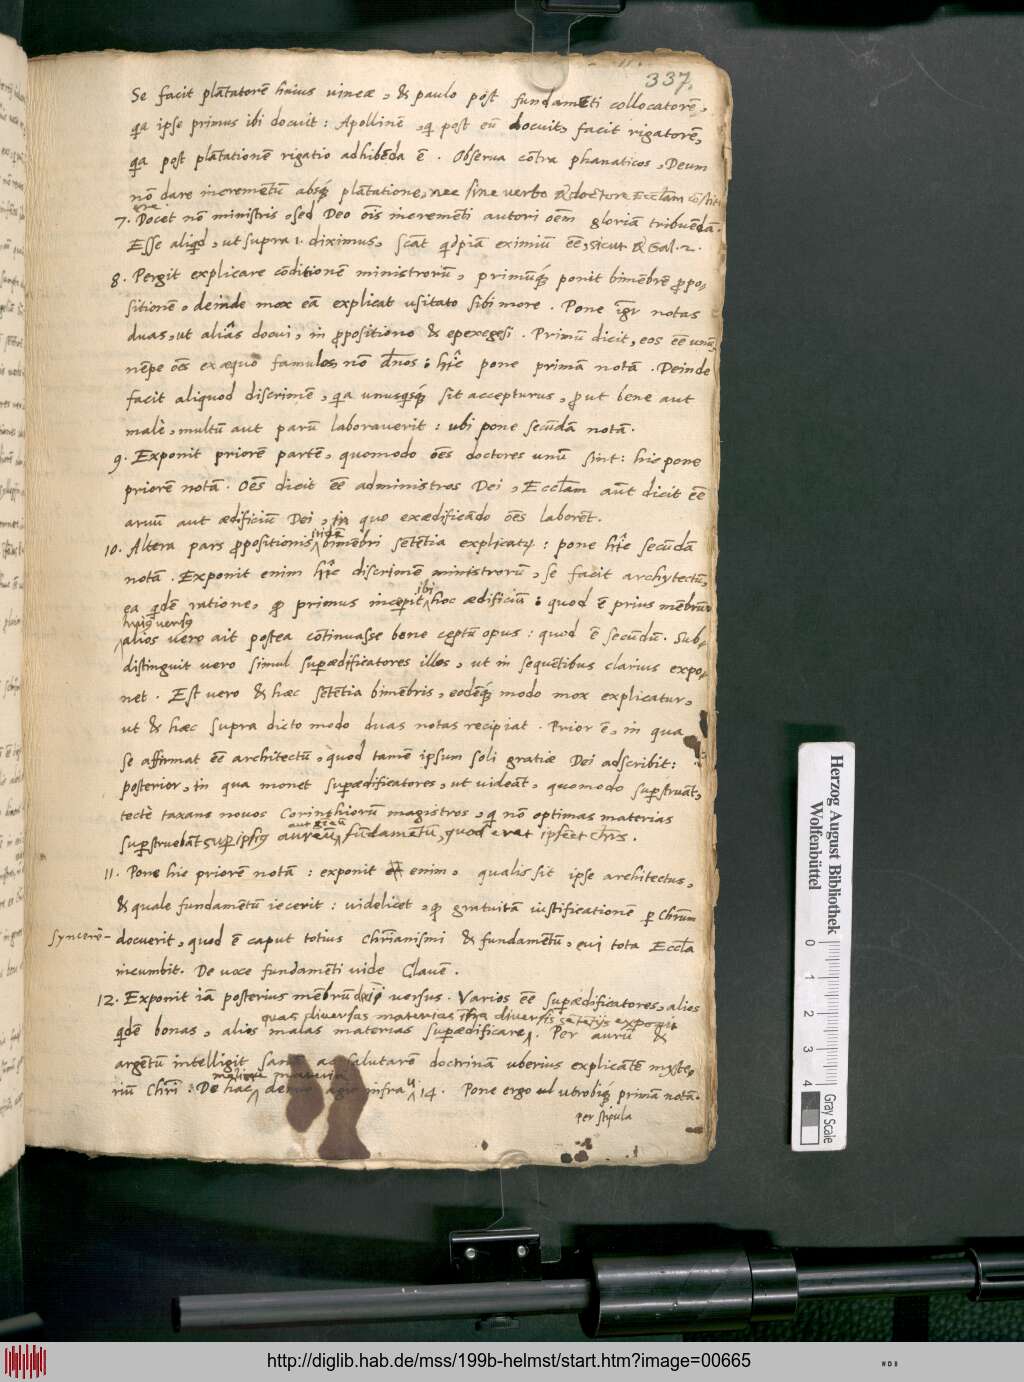 337.
Se facit plātatorē huius vineæ, & paulo post fundamēti collocatorē,
qa ipse primus ibi docuit: Apollinē, q post eū docuit, facit rigatorē,
qa post plātationē rigatio adhibēda ē. Observa cōtra phanaticos, Deum
nō dare incremētū absq plātatione, nec sine verbo & doctore Eccłam
7. Docet nō ministris, sed Deo oīs incremēti autori oēm gloriā tribuēdā.
Esse aliqd, ut supra 1. diximus, eximiū eē, sicut & Gal. 2.
8. Pergit explicare cōditionē ministrorū, primūq ponit bimēbrē propo-
sitionē, deinde mox eā explicat usitato sibi more. Pone igr notas
duas, ut aliâs docui, in propositione & epexegesi. Primū dicit, eos eē unū,
nēpe oēs ex æquo famulos, nō dnos: hîc pone primā notā. Deinde
facit aliquod discrimē, qa unusqsq sit accepturus, prout bene aut
malè, multū aut parū laboraverit: ubi pone secūdā notā.
9. Exponit priorē partē, quomodo oēs doctores unū sint: hic pone
priorē notā. Oēs dicit eē administros Dei, Eccłam aūt dicit eē
arvū aut ædificiū Dei, in quo exædificādo oēs laborēt.
10. Altera pars propositionis bimēbri sētētia explicat: pone hîc secūdā
notā. Exponit enim hîc discrimē ministrorū, se facit archytectū,
ibi
ea qdē ratione, q primus incepit hoc ædificiū: quod ē prius mēbrū
huius versus
alios vero ait postea cōtinuasse bene ceptū opus: quod ē secūdū. Sub-
distinguit vero simul superædificatores illos, ut in sequētibus clarius expo-
net. Est vero & hæc sētētia bimēbris, eodēq modo mox explicatur,
ut & hæc supra dicto modo duas notas recipiat. Prior ē, in qua
se affirmat eē architectū, quod tamē ipsum soli gratiæ Dei adscribit:
posterior, in qua monet superædificatores, ut videāt, quomodo superstruāt,
tectè taxans novos Corinthiorū magistros, q nō optimas materias
superstruebāt super ipsius aureū fūdamētū, quod erat
11. Pone hic priorē notā: exponit enim, qualis sit ipse architectus,
& quale fundamētū iecerit: videlicet, q gratuitā iustificationē p Chrūm
syncerè- docuerit, quod ē caput totius Chrīanismi & fundamētū, cui tota Eccła
incumbit. De voce fundamēti vide Clavē.
12. Exponit iā posterius mēbrū versus. Varios eē superædificatores, alios
quas diversas materias īfra diversis
qdē bonas, alios malas materias superædificare. Per aurū &
argētū intelligit sanā ac salutarē doctrinā uberius explicātē myste-
riū Chrī: De hac infra 14. Pone ergo utrobiq primā notā.
per stipula
Herzog August Bibliothek
Wolfenbüttel
0 1 2 3 4
Gray Scale
http://diglib.hab.de/mss/199b-helmst/start.htm?image=00665
WDB